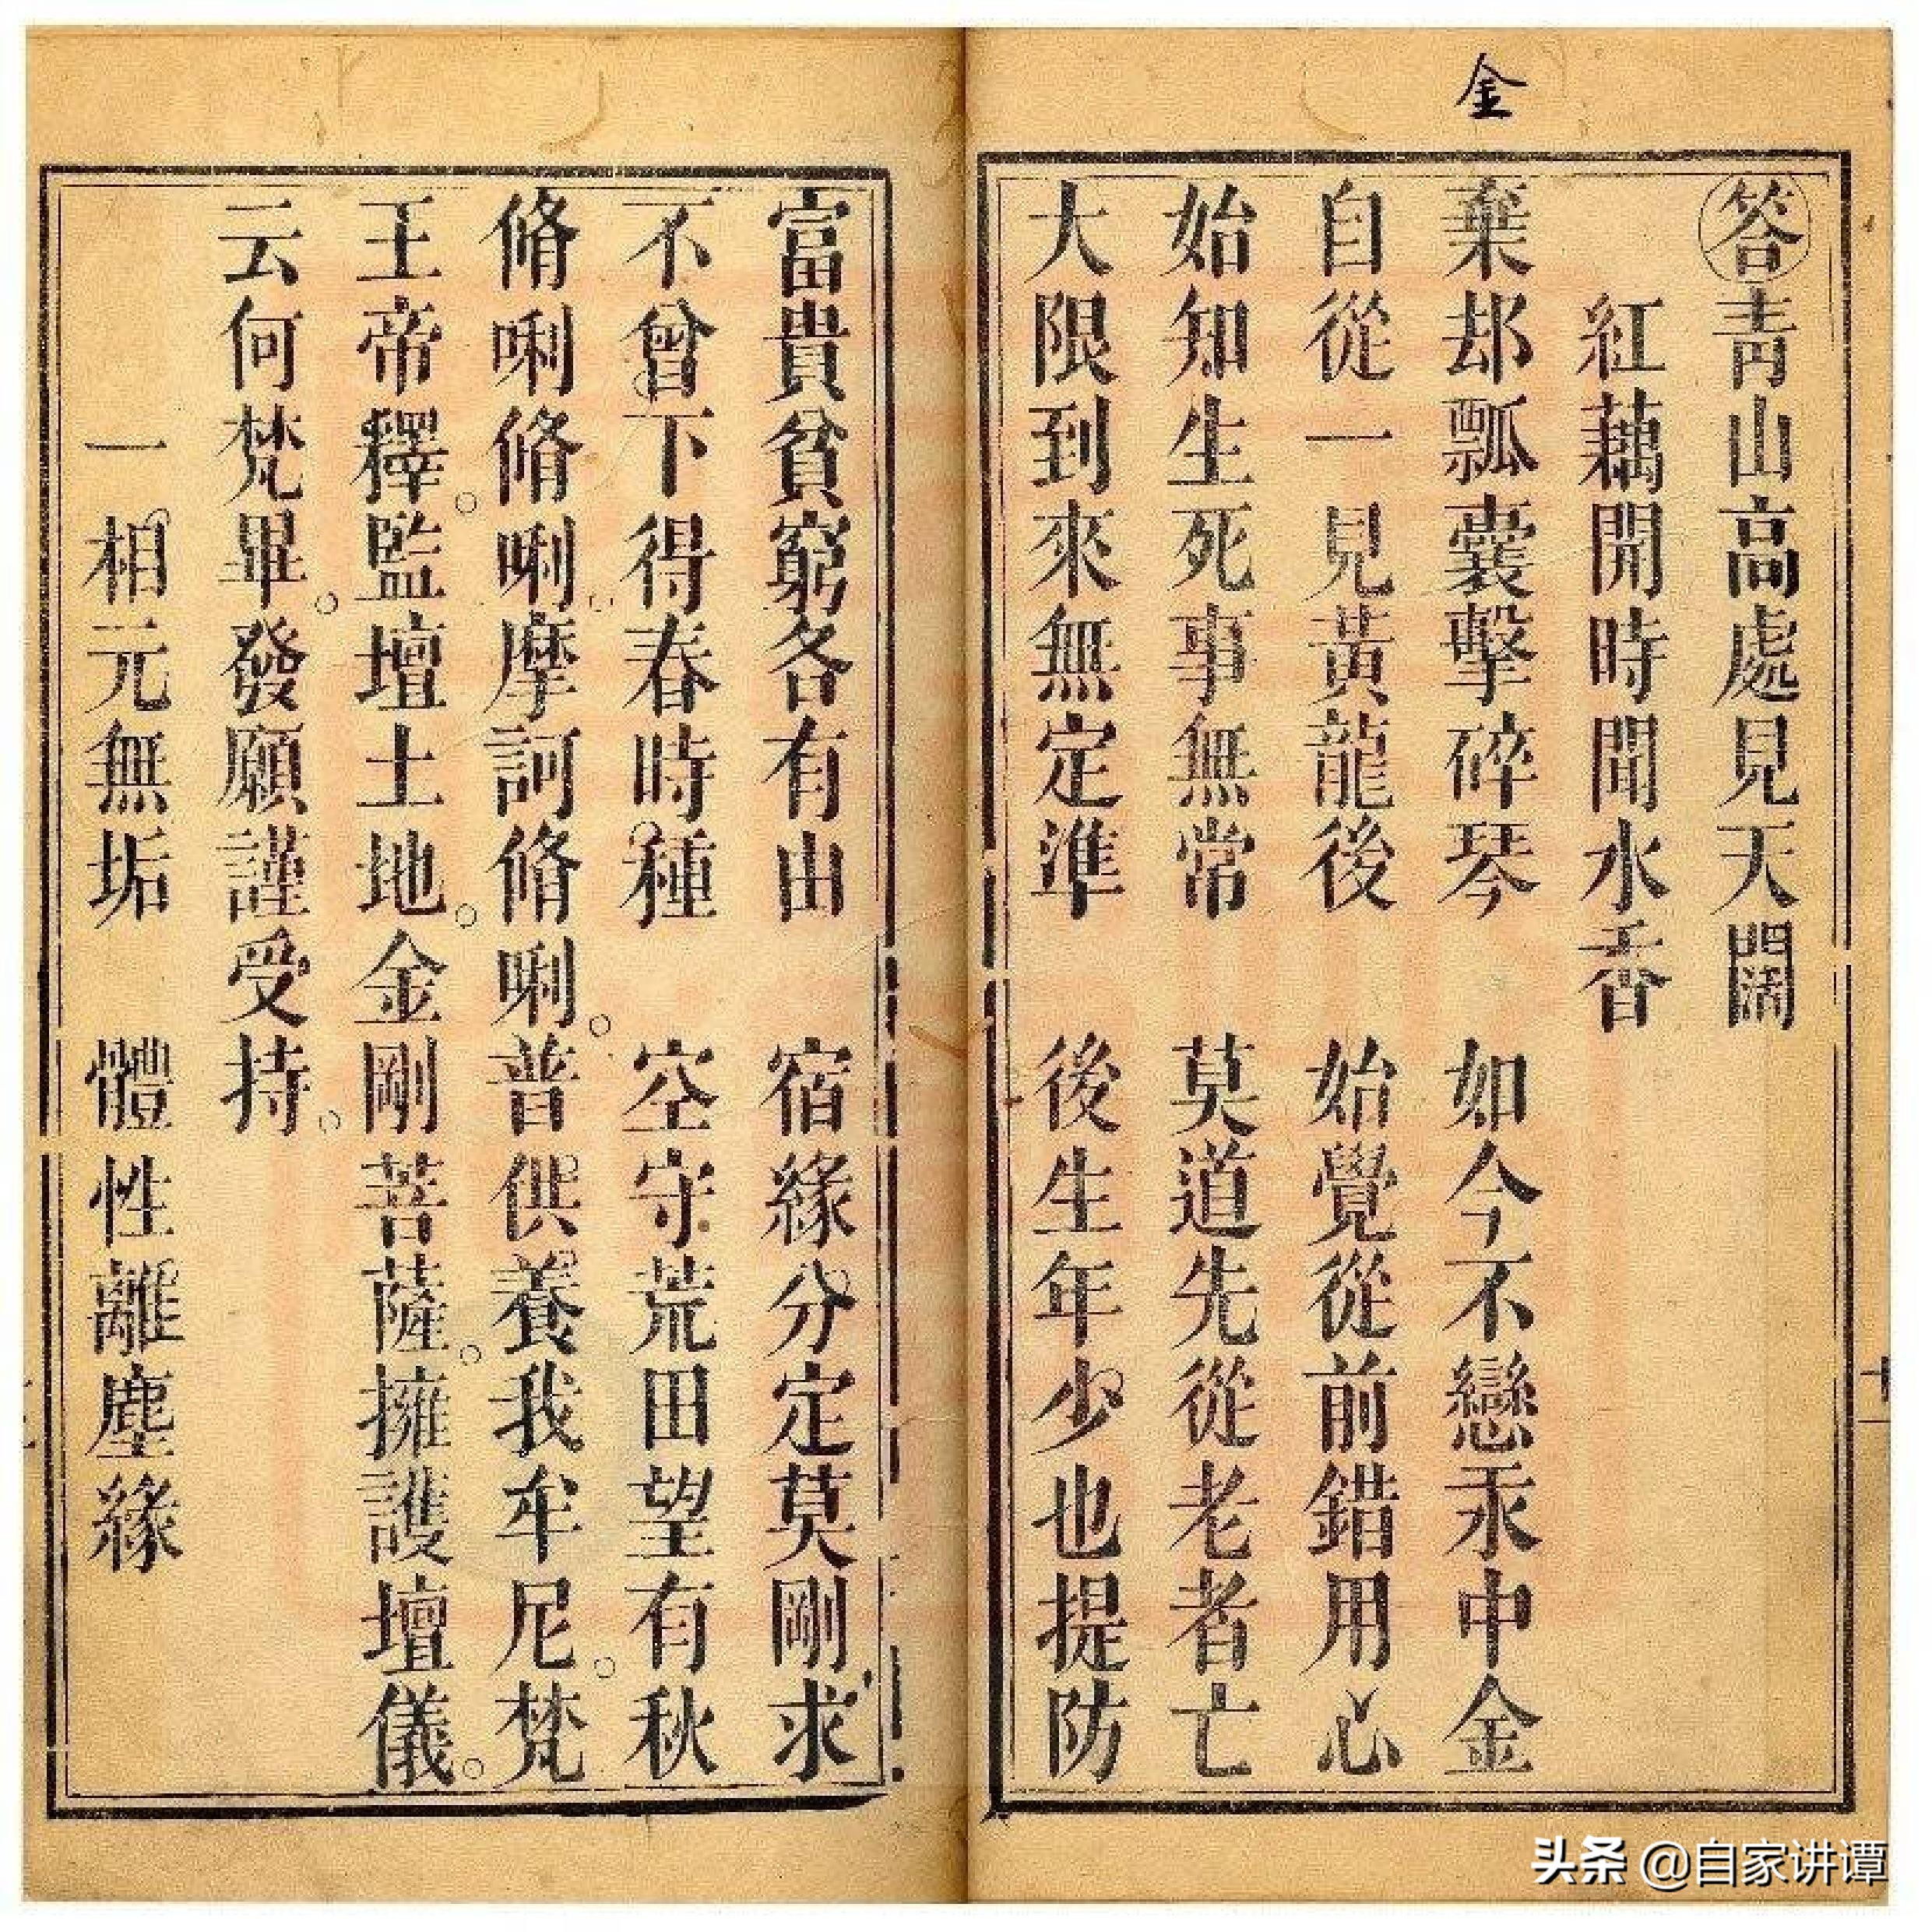 金
答青山高處見天闊
紅藕開時聞水香
棄却瓢囊擊碎琴　如今不戀汞中金
自從一見黃龍後　始覺從前錯用心
始知生死事無常　莫道先從老者亡
大限到來無定準　後生年少也提防
富貴貧窮各有由　宿緣分定莫剛求
不曾下得春時種　空守荒田望有秋
脩唎脩唎。摩訶脩唎。普供養我牟尼。梵
王帝釋。監壇土地。金剛菩薩。擁護壇儀。
云何梵畢。發願謹受持。
一相元無垢　體性離塵緣
头条 @自家讲谭